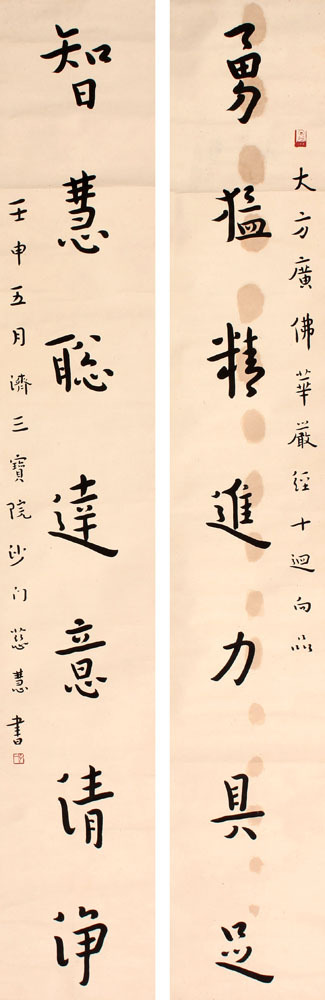 大方廣佛華嚴經十迴向品
勇猛精進力具足
智慧聰達意清淨
壬申五月濟三寶院沙门慈慧書